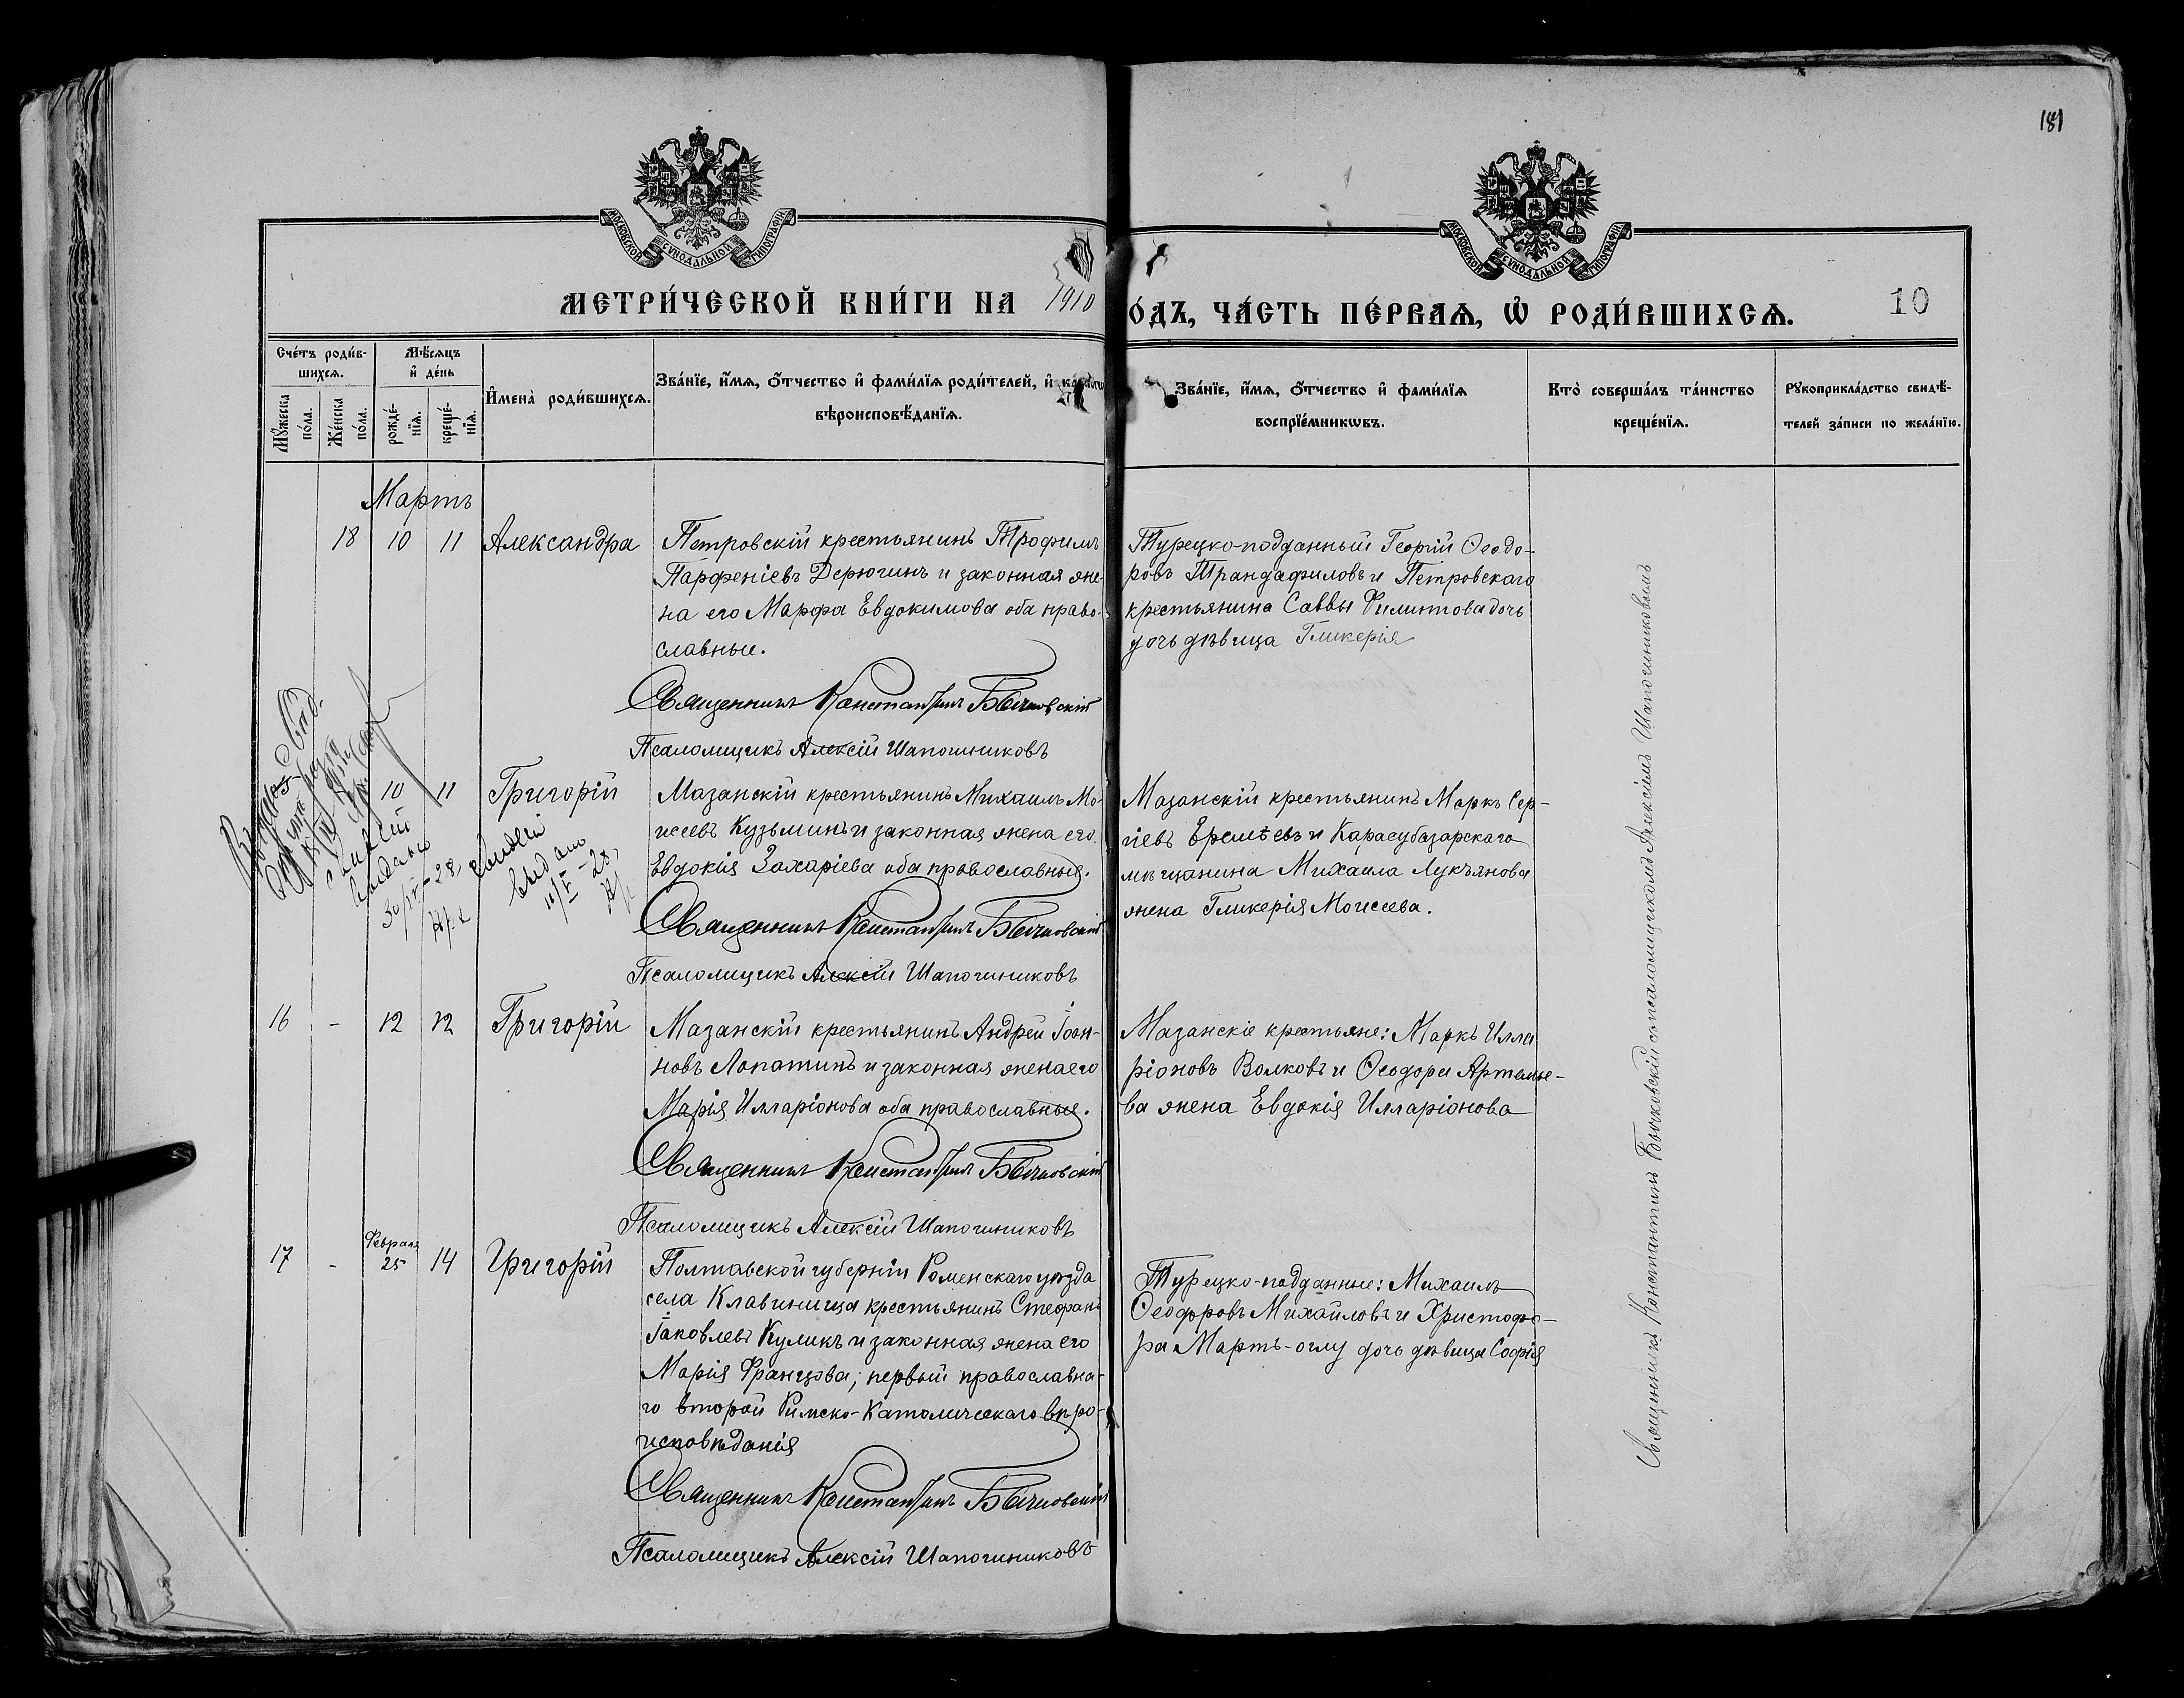 181
МОСКОВСКОЙ СѴНОДАЛЬНОЙ ТИПОГРАФІИ
МОСКОВСКОЙ СѴНОДАЛЬНОЙ ТИПОГРАФІИ
МЕТРИ́ЧЕСКОЙ КНИ́ГИ НА 1910
О́ДЪ, ЧА́СТЬ ПЕ́РВАѦ, Ѡ҆ РОДИ́ВШИХСѦ.
10
Сче́тъ роди́в-
шихсѧ.
Мꙋ́жеска
по́ла.
Же́нска
по́ла.
Мѣ́сѧцъ
и҆ де́нь
рожде́-
нїѧ.
креще́-
нїѧ.
И҆мена̀ роди́вшихсѧ.
Зва́нїе, и҆́мѧ, ѻ҆́тчество и҆ фами́лїѧ роди́телей, и҆
вѣроисповѣ́данїѧ.
Зва́нїе, и҆́мѧ, ѻ҆́тчество и҆ фами́лїѧ
воспрїе́мникѡвъ.
Кто̀ соверша́лъ та́инство
креще́нїѧ.
Рꙋкоприкла́дство свидѣ́-
телей за́писи по жела́нїю.
Мартъ
18 10 11 Александра
Петровскій крестьянинъ Трофимъ
Парфеніевъ Дерюгинъ и законная же-
на его Марфа Евдокимова оба право-
славные.
Священникъ Константинъ Бычковскій
Псаломщикъ Алексій Шапочниковъ
Турецко-подданный Георгій Ѳеодо-
ровъ Трандафиловъ и Петровскаго
крестьянина Саввы Филитова дочь
дочь дѣвица Гликерія
10 11 Григорій
Мазанскій крестьянинъ Михаилъ Мо-
исеевъ Кузьминъ и законная жена его
Евдокія Захаріева оба православные.
Священникъ Константинъ Бычковскій
Псаломщикъ Алексій Шапочниковъ
Мазанскій крестьянинъ Маркъ Сер-
гіевъ Еремѣевъ и Карасубазарскаго
мѣщанина Михаила Лукъянова
жена Гликерія Моисеева.
16 - 12 12 Григорій
Мазанскій крестьянинъ Андрей Іоан-
новъ Лопатинъ и законная жена его
Марія Илларіонова оба православные.
Священникъ Константинъ Бычковскій
Псаломщикъ Алексій Шапочниковъ
Мазанскіе крестьяне: Маркъ Илла
ріоновъ Волковъ и Ѳеодора Артемье-
ва жена Евдокія Илларіонова
17 - Февраля 25 14 Григорій
Полтавской губерніи Роменскаго уѣзда
села Клавиница крестьянинъ Стефанъ
Іаковлевъ Куликъ и законная жена его
Марія Францова; первый православна-
го второй Римско-Католическаго вѣро-
исповѣданія
Священникъ Константинъ Бычковскій
Псаломщикъ Алексій Шапочниковъ
Турецко-подданные: Михаилъ
Ѳеодоровъ Михайловъ и Христофо-
ра Мартъ-оглу дочь дѣвица Софія
Священникъ Константинъ Бычковскій съ псаломщикомъ Алексіемъ Шапочниковымъ